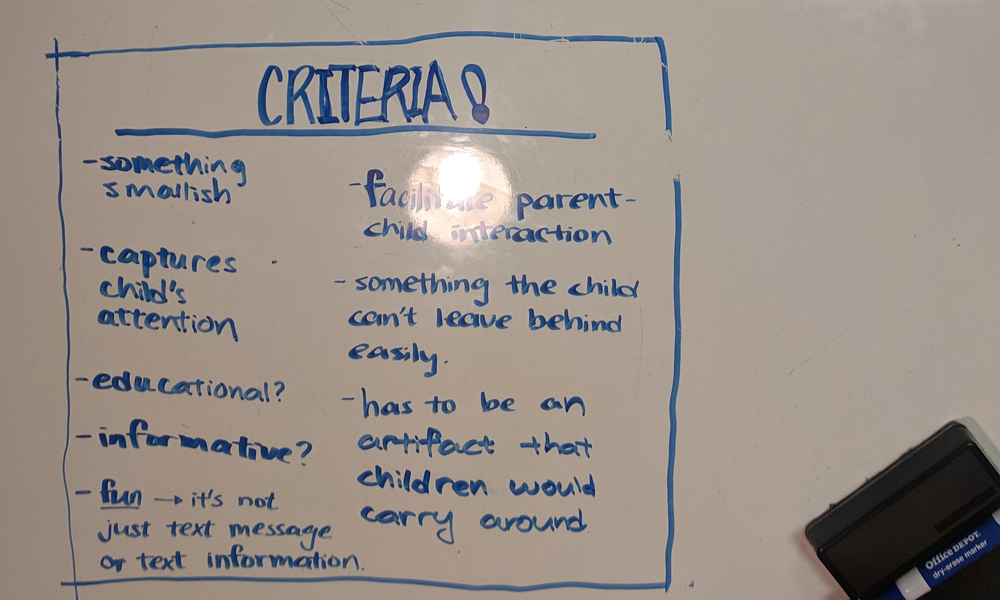 CRITERIA!
-something
smallish
-captures
child's
attention
-educational?
-informative?
- fun → it's not
just text message
or text information.
-facilitate parent-
child interaction
- something the child
can't leave behind
easily.
-has to be an
artifact that
children would
carry around
Office DEPOT
dry-erase marker